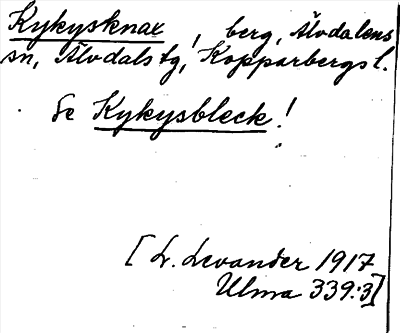 Kykysknax, berg, Älvdalens
sn, Älvdals tg, Kopparbergs l.
Se Kykysbleck!
[L. Levander 1917
Ulma 339:3]